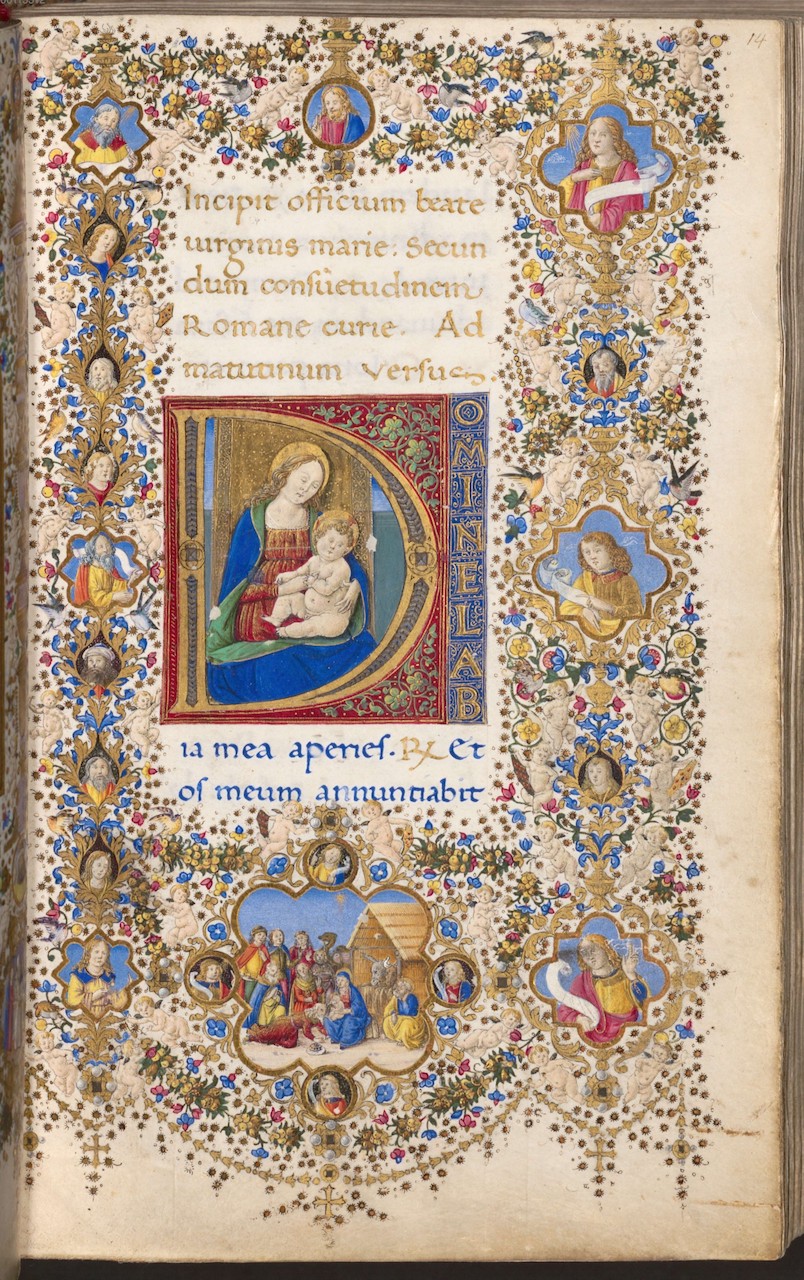 14
Incipit officium beate
uirginis marie. Secun
dum consũetudinem
Romane curie. Ad
matutinum versus.
DOMINE LAB
ia mea aperies. R Et
os meum annuntiabit